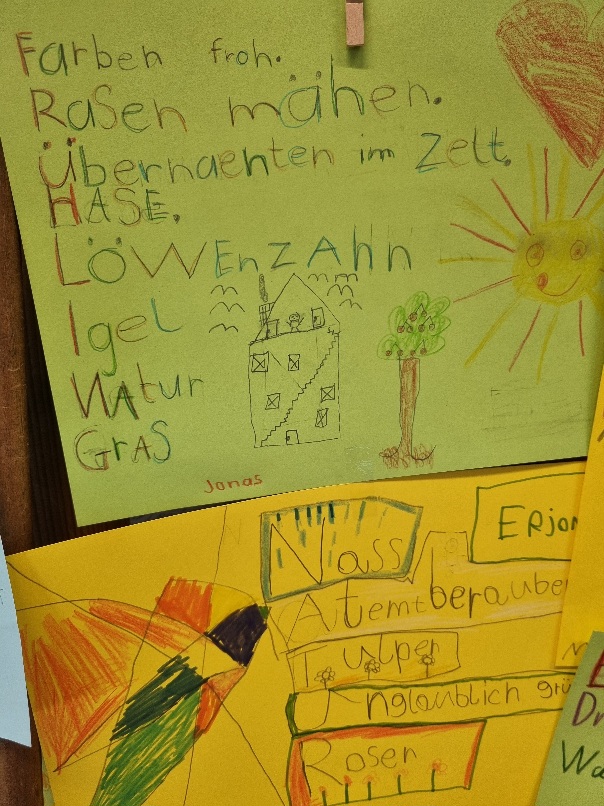 Farben froh.
RaSen mähen.
Übernachten im Zelt.
HASE.
LÖWEnZAhn
Igel
NAtur
GrAS
Jonas
ERjon
Nass
Atemtberaube
Tulpen
Unglaublich grü
Rosen
Dr
Wa